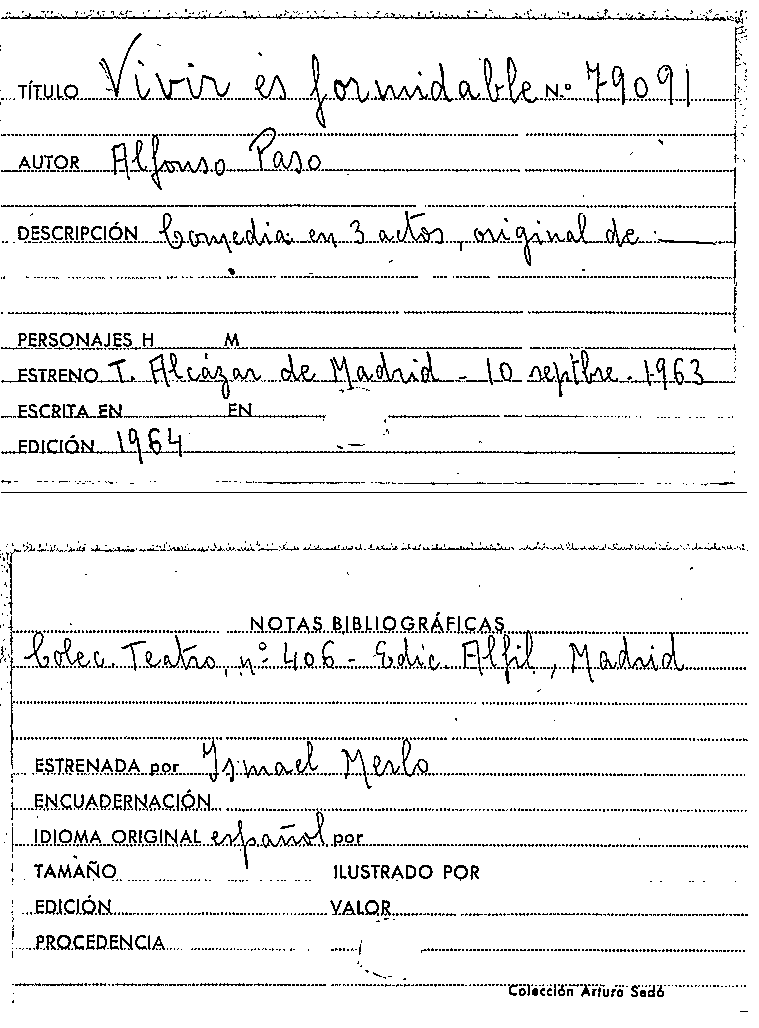 TÍTULO Vivir es formidable N.º 79091
AUTOR Alfonso Paso
DESCRIPCIÓN Comedia en 3 actos, original de:
PERSONAJES H M
ESTRENO T. Alcázar de Madrid - 10 septbre. 1963
ESCRITA EN EN
EDICIÓN 1964
NOTAS BIBLIOGRÁFICAS
Colec. Teatro, nº 406 - Edic. Alfil, Madrid
ESTRENADA por Ismael Merlo
ENCUADERNACIÓN
IDIOMA ORIGINAL español por
TAMAÑO ILUSTRADO POR
EDICIÓN VALOR
PROCEDENCIA
Colección Arturo Sedó